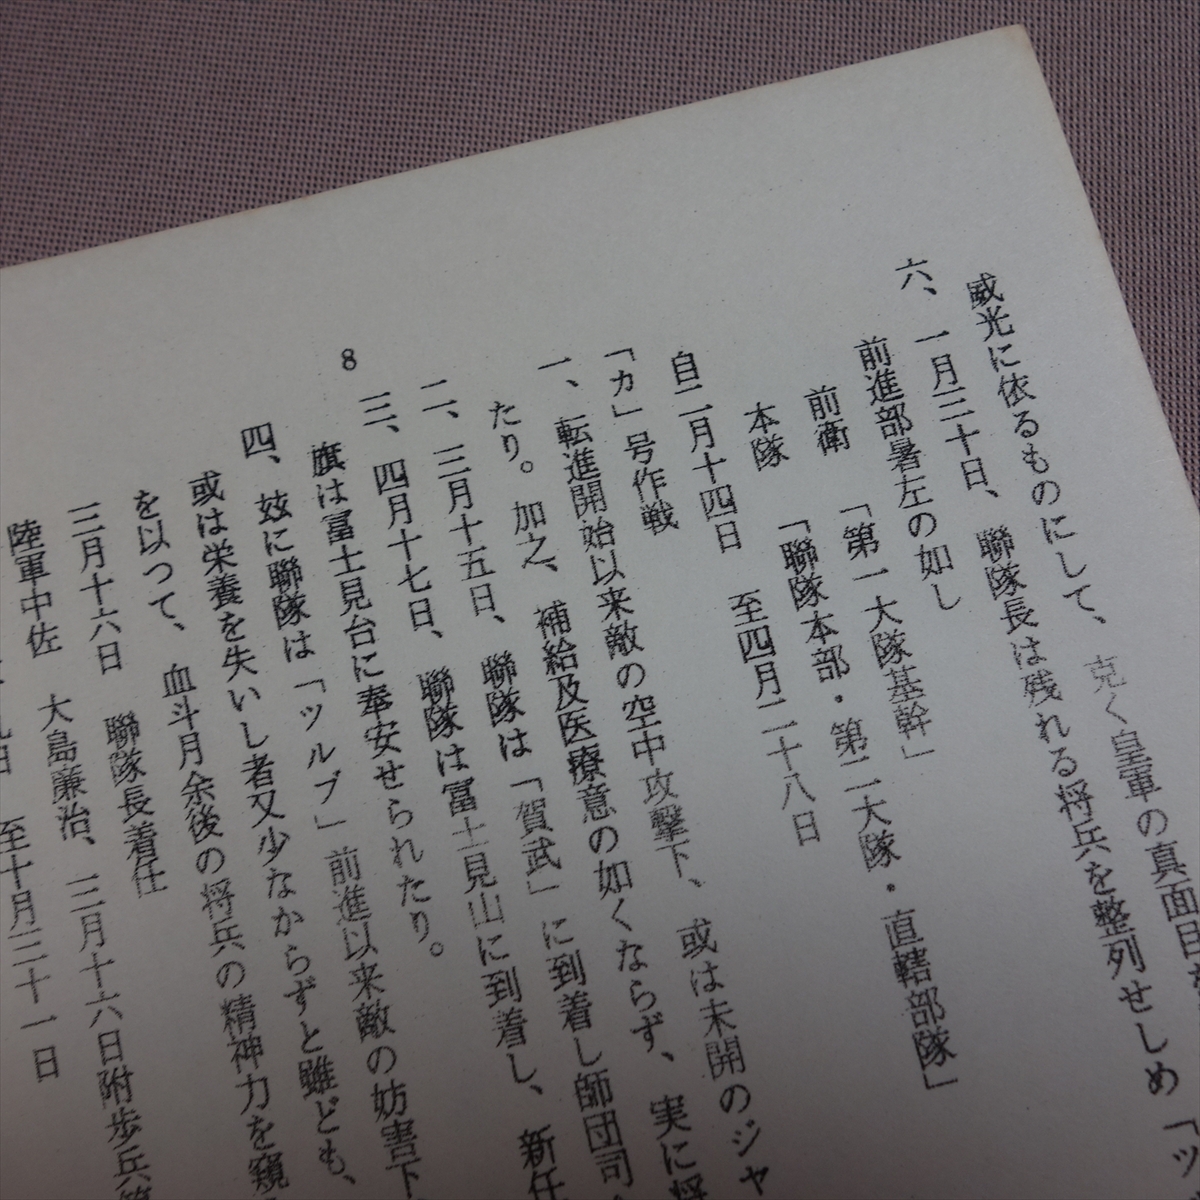 威光に依るものにして、克く皇軍の真面目を
六、一月三十日、聯隊長は残れる将兵を整列せしめ「ツ
前進部署左の如し
前衛　「第一大隊基幹」
本隊　「聯隊本部・第二大隊・直轄部隊」
自二月十四日　至四月二十八日
「カ」号作戦
一、転進開始以来敵の空中攻撃下、或は未開のジャ
たり。加之、補給及医療意の如くならず、実に将
二、三月十五日、聯隊は「賀武」に到着し師団司
三、四月十七日、聯隊は冨士見山に到着し、新任
旗は冨士見台に奉安せられたり。
8
四、玆に聯隊は「ツルブ」前進以来敵の妨害下
或は栄養を失いし者又少なからずと雖ども、
を以つて、血斗月余後の将兵の精神力を窺
三月十六日　聯隊長着任
陸軍中佐　大島蕉治、三月十六日附歩兵第
九日　至十月三十一日